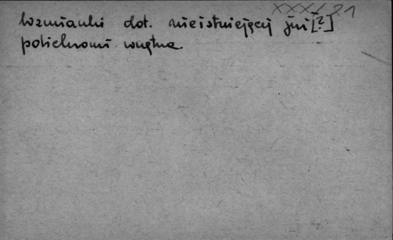 XXXI 21
Wzmianki dot. nieistniejącej już [?]
polichromii wnętrza